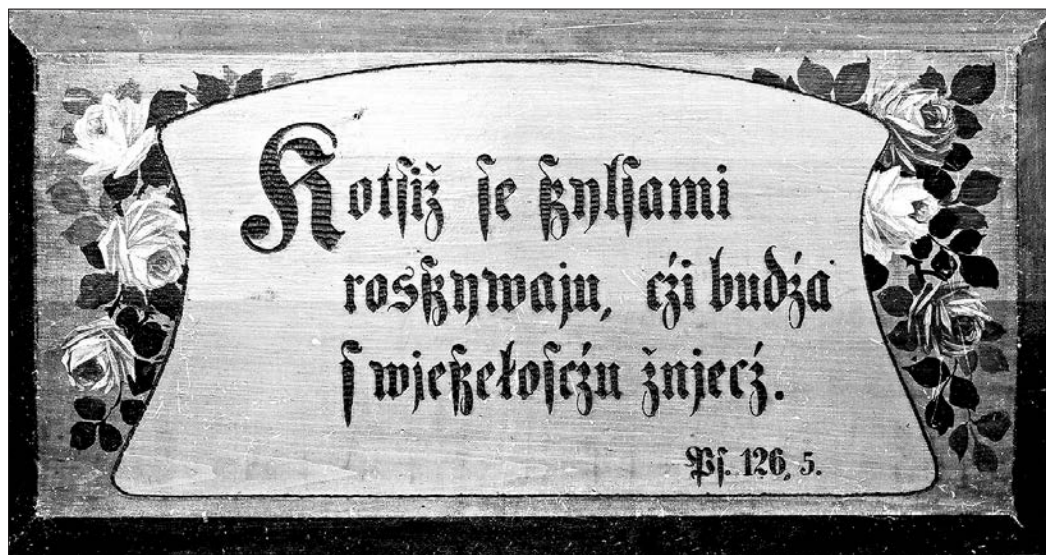 Kotſiž ſe ßylſami
rosßywaju, cźi budźa
ſ wjeßełoſcźu žnjecź.
Pſ. 126, 5.